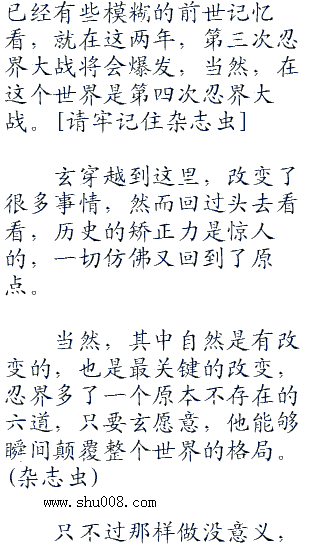 已经有些模糊的前世记忆
看，就在这两年，第三次忍
界大战将会爆发，当然，在
这个世界是第四次忍界大
战。[请牢记住杂志虫]
玄穿越到这里，改变了
很多事情，然而回过头去看
看，历史的矫正力是惊人
的，一切仿佛又回到了原
点。
当然，其中自然是有改
变的，也是最关键的改变，
忍界多了一个原本不存在的
六道，只要玄愿意，他能够
瞬间颠覆整个世界的格局。
(杂志虫)
www.shu008.com
只不过那样做没意义，